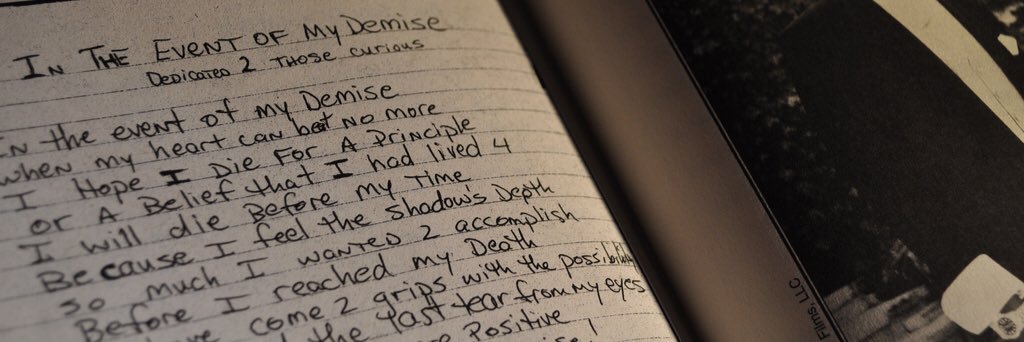 In The Event of My Demise
Dedicated 2 those curious
In the event of my Demise
when my heart can beat no more
I Hope I Die For A Principle
or A Belief that I had lived 4
I will die Before my Time
Because I feel the shadow's Depth
so much I wanted 2 accomplish
Before I reached my Death
come 2 grips with the possibility
the last tear from my eyes
Positive
Films LLC